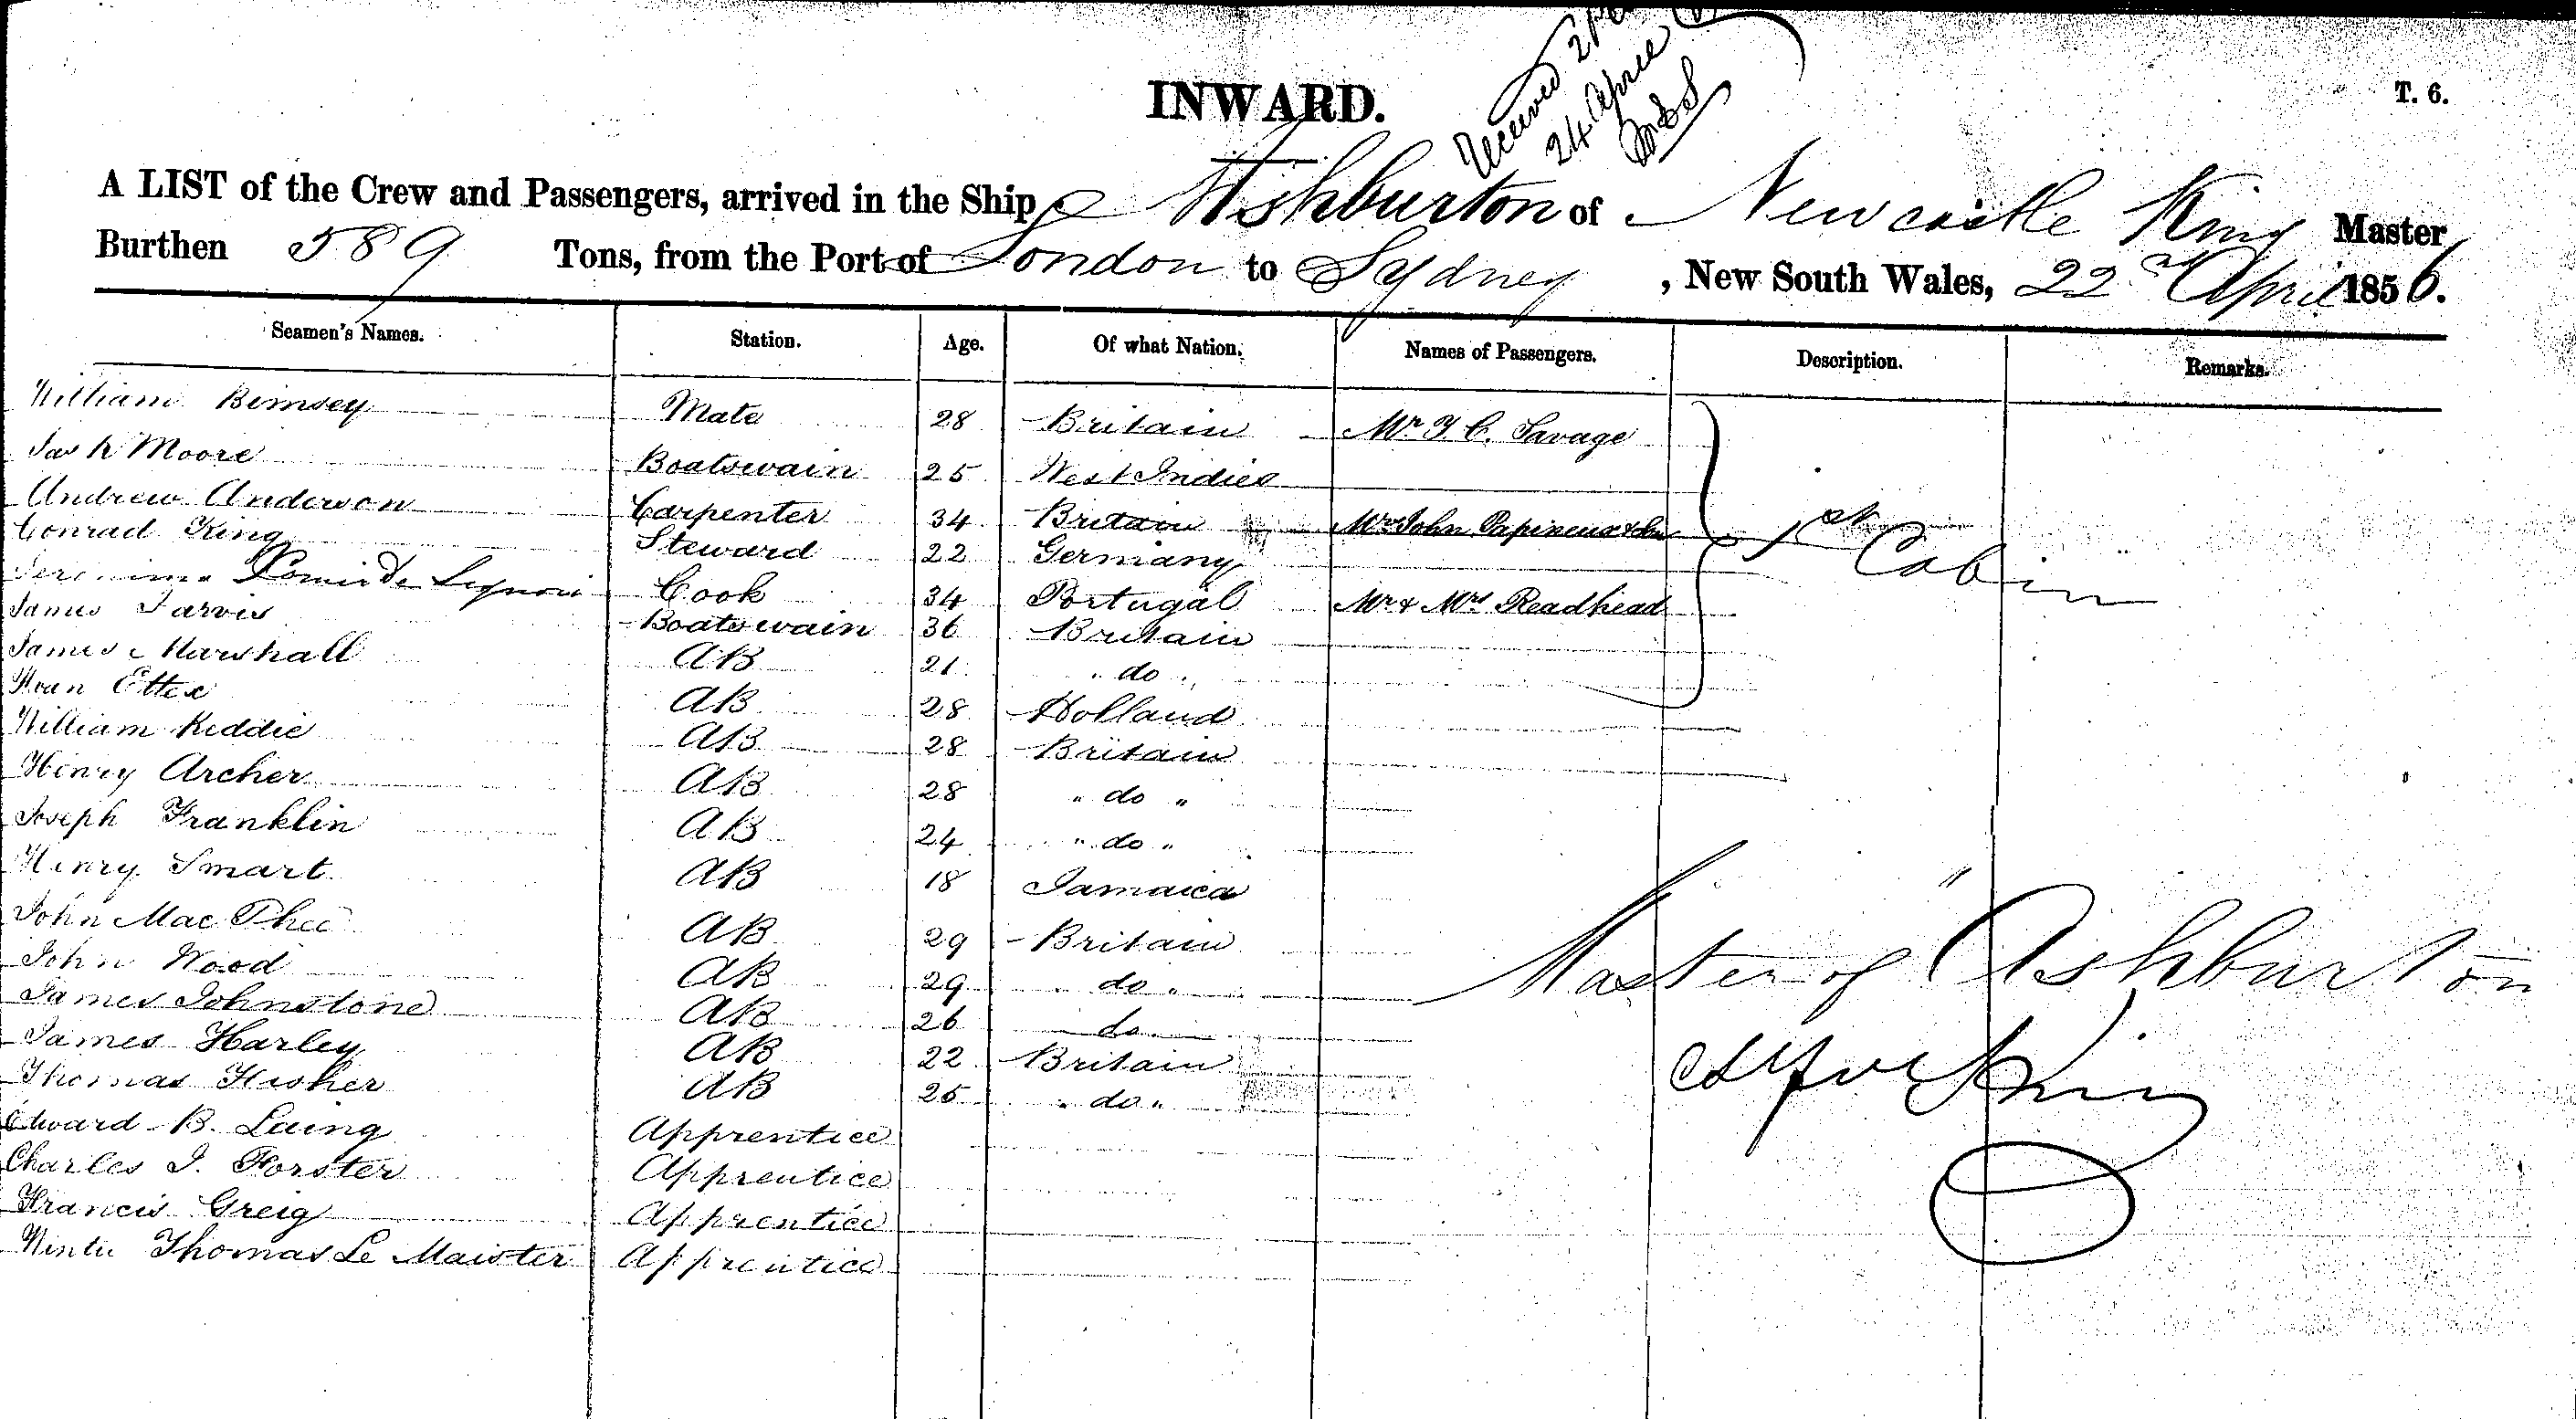 INWARD.
T. 6.
Received
24 April
A LIST of the Crew and Passengers, arrived in the Ship Ashburton of Newcastle King Master
Burthen 589 Tons, from the Port of London to Sydney, New South Wales, 22nd April 1856.
Seamen's Names. Station. Age. Of what Nation. Names of Passengers. Description. Remarks.
William Bimsey Mate 28 Britain Mr J. C. Savage
Moore Boatswain 25 West Indies
Andrew Anderson Carpenter 34 Britain Mr John
Conrad King Steward 22 Germany 1st Cabin
Cook 34 Portugal Mr & Mrs Readhead
James Jarvis Boatswain 36 Britain
James Marshall AB 21 " do "
AB 28 Holland
William Keddie AB 28 Britain
Henry Archer AB 28 " do "
Joseph Franklin AB 24 " do "
Henry Smart AB 18 Jamaica
John Mac Phee AB 29 Britain
John Wood AB 29 " do "
James Johnstone AB 26 do
James Harley AB 22 Britain
Thomas Fisher AB 25 " do "
Edward B. Laing Apprentice
Charles J. Forster Apprentice
Francis Greig Apprentice
Thomas Le Maister Apprentice
Master of "Ashburton
King